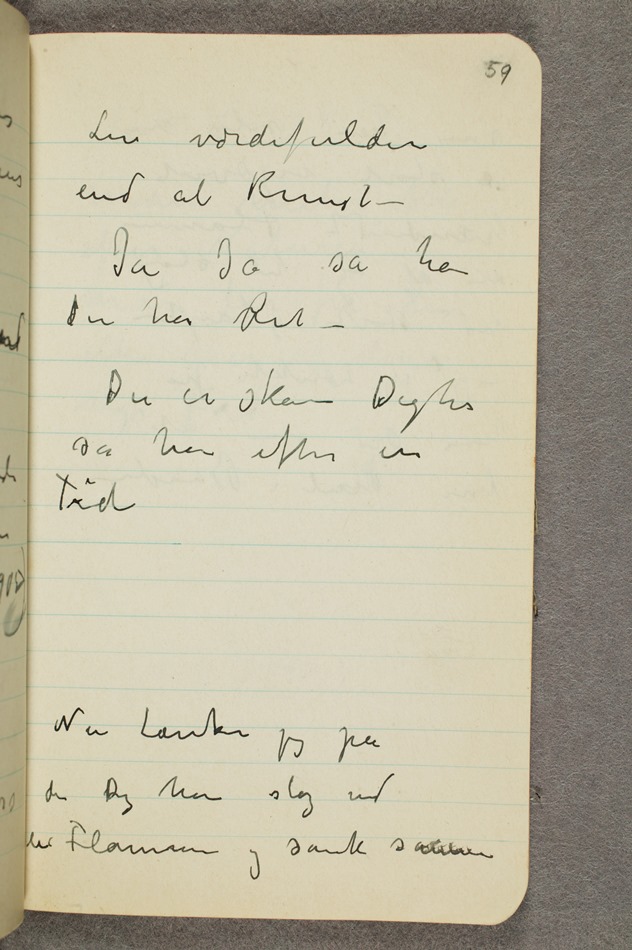 59
Liv værdefulder
end al Kunst—
Ja Ja sa han
Du har Ret —
Du er skam Digter
sa han efter en
Tid
Nu tænker jeg på
da han slog ud
Flammen og sank sammen